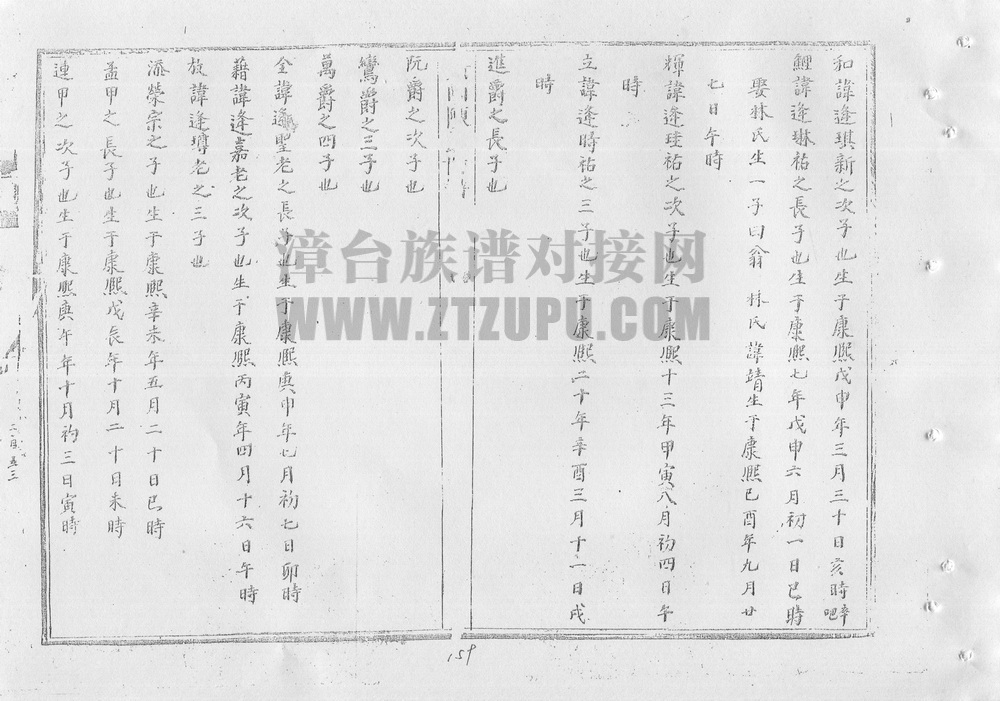 和諱逢琪新之次子也生于康熙戊申年三月三十日亥時卒吧
鯉諱逢琳祐之長子也生于康熙七年戊申六月初一日巳時
娶林氏生一子曰翁 林氏諱靖生于康熙己酉年九月廿
七日午時
輝諱逢珪祐之次子也生于康熙十三年甲寅八月初四日午
時
立諱逢時祐之三子也生于康熙二十年辛酉三月十一日戌
時
進爵之長子也
阮爵之次子也
鸞爵之三子也
萬爵之四子也
全諱逢聖老之長子也生于康熙庚申年七月初七日卯時
藉諱逢嘉老之次子也生于康熙丙寅年四月十六日午時
放諱逢㙛老之三子也
添榮宗之子也生于康熙辛未年五月二十日巳時
孟甲之長子也生于康熙戊辰年十月二十日未時
連甲之次子也生于康熙庚午年十月初三日寅時
二百五三
159
漳台族谱对接网
WWW.ZTZUPU.COM